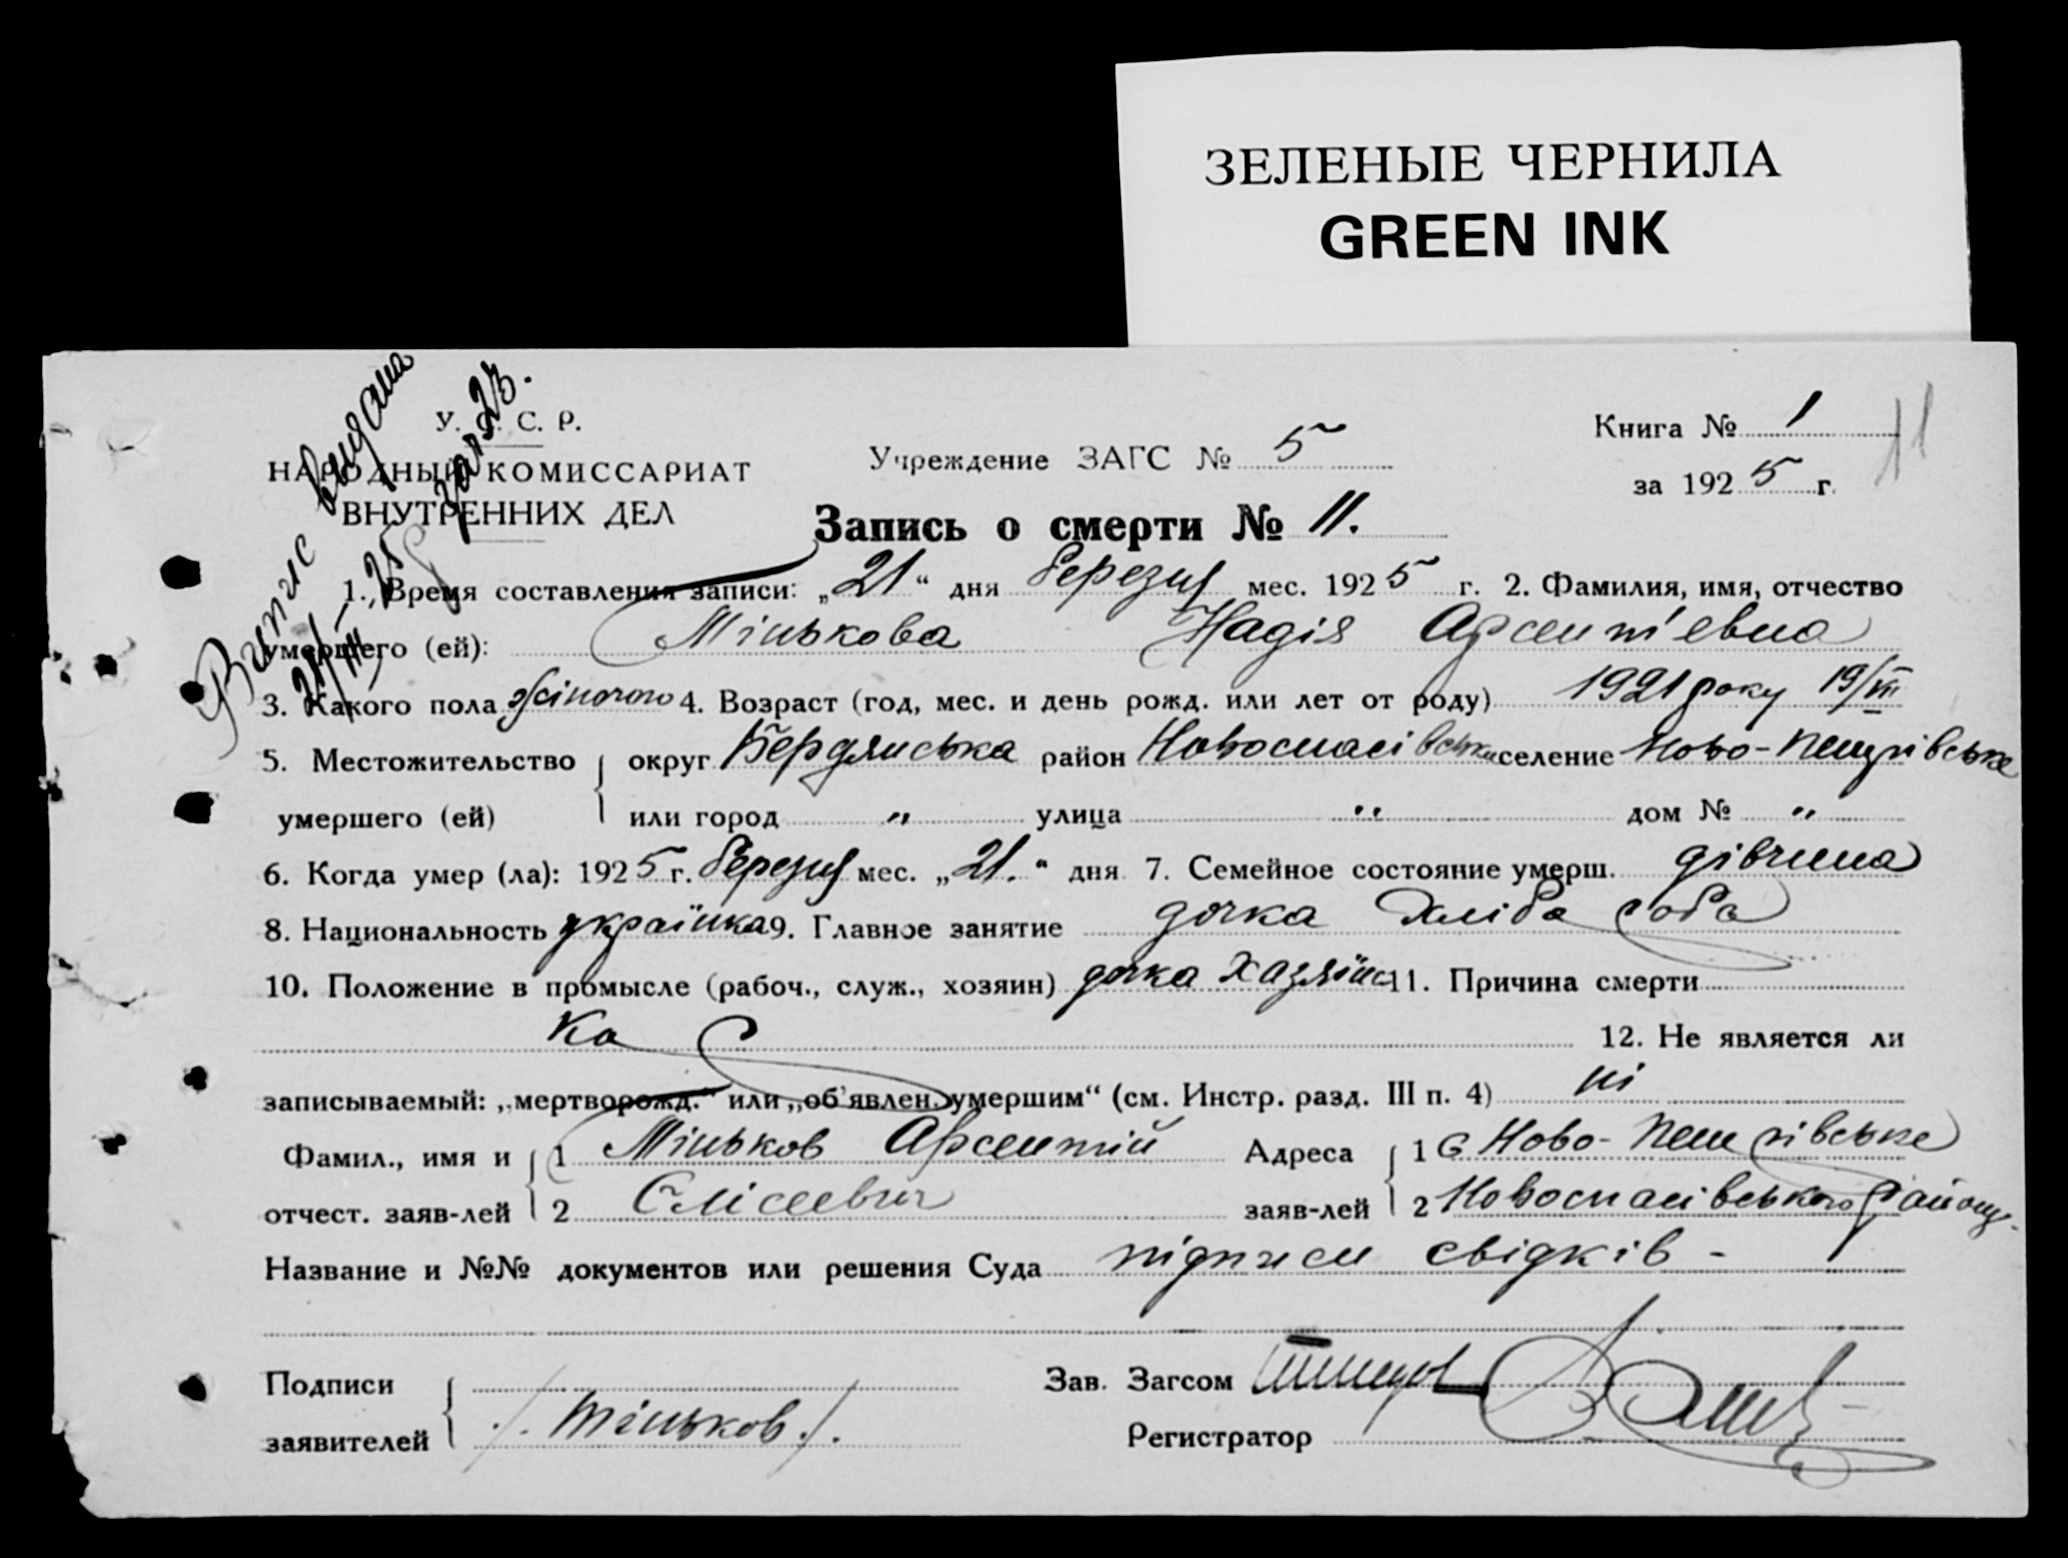 ЗЕЛЕНЫЕ ЧЕРНИЛА
GREEN INK
Випис видана
21/III-25 р за № 23.
У. С. С. Р.
НАРОДНЫЙ КОМИССАРИАТ
ВНУТРЕННИХ ДЕЛ
Учреждение ЗАГС № 5
Книга № 1
за 1925 г.
11
Запись о смерти № 11.
1. Время составления записи: „21“ дня березня мес. 1925 г. 2. Фамилия, имя, отчество
умершего (ей): Мінькова Надія Арсентіевна
3. Какого пола жіночого 4. Возраст (год, мес. и день рожд. или лет от роду) 1921 року 19/VIII
5. Местожительство округ Бердянська район Новоспасівськ селение Ново-Петрівське
умершего (ей) или город " улица " дом № "
6. Когда умер (ла): 1925 г. березня мес. „21.“ дня 7. Семейное состояние умерш. дівчина
8. Национальность українка 9. Главное занятие дочка хліба роба
10. Положение в промысле (рабоч., служ., хозяин) дочка хазяїна 11. Причина смерти
12. Не является ли
записываемый: „мертворожд.“ или „об'явлен. умершим“ (см. Инстр. разд. III п. 4) ні
Фамил., имя и 1 Міньков Арсентій Адреса 1 С Ново-Петрівське
отчест. заяв-лей 2 Єлісеевич заяв-лей 2 Новоспасівського району.
Название и №№ документов или решения Суда підписи свідків -
Подписи Зав. Загсом
заявителей /. Міньков ./. Регистратор